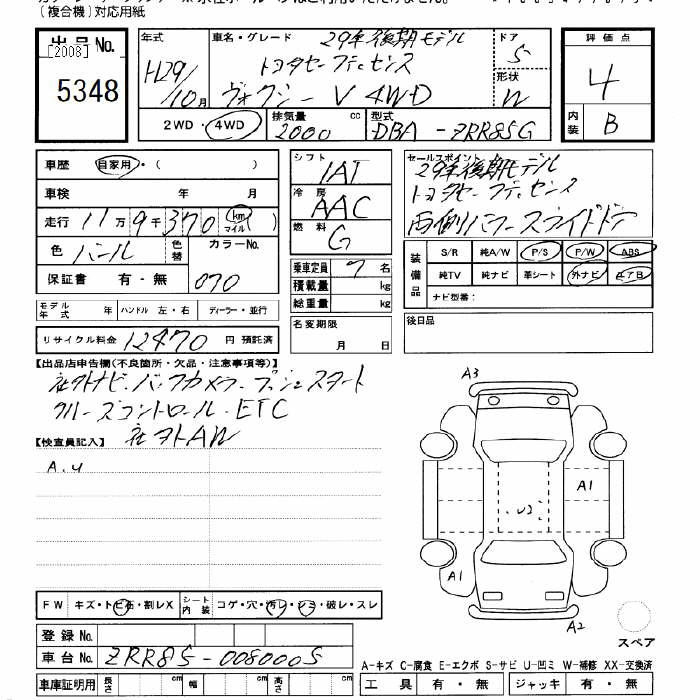 (複合機)対応用紙
出品No.
[2008]
5348
年式
H29/10月
車名・グレード
29年後期モデル
トヨタセーフティセンス
ヴォクシー V 4WD
ドア
5
形状
W
評価点
4
内装
B
2WD・4WD
排気量
2000
cc
型式
DBA-ZRR85G
車歴
自家用・( )
車検 年 月
走行 11万9千370 km マイル( )
色 パール
色替
カラーNo.
070
保証書 有・無
モデル年式 年 ハンドル 左・右 ディーラー・並行
リサイクル料金 12470 円 預託済
シフト
IAT
冷房
AAC
燃料
G
乗車定員 7 名
積載量 kg
総重量 kg
名変期限
月 日
セールスポイント
29年後期モデル
トヨタセーフティセンス
両側パワースライドドア
装備品
S/R 純A/W P/S P/W ABS
純TV 純ナビ 革シート 外ナビ エアB
ナビ型番:
後日品
【出品店申告欄(不良箇所・欠品・注意事項等)】
社外ナビ.バックカメラ.プッシュスタート
クルーズコントロール.ETC
社外AW
【検査員記入】
A.U
A3
A1
A1
A2
スペア
FW キズ・トビ石・割レX
シート内装 コゲ・穴・汚レ・シミ・破レ・スレ
登録No.
車台No. ZRR85-0080005
車庫証明用 長さ cm 幅 cm 高さ cm
A-キズ C-腐食 E-エクボ S-サビ U-凹ミ W-補修 XX-交換済
工具 有・無 ジャッキ 有・無